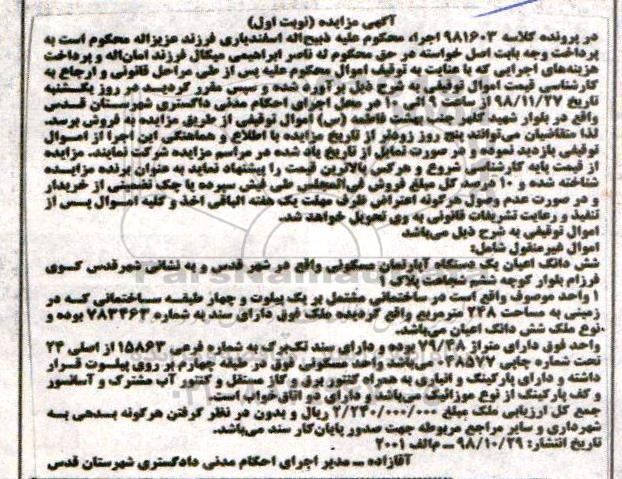 آگهی مزایده (نوبت اول)
در پرونده کلاسه ۹۸۱۶۰۳ اجراء محکوم علیه ذبیح‌اله اسفندیاری فرزند عزیزاله محکوم است به
پرداخت وجه بابت اصل خواسته در حق محکوم له ناصر ابراهیمی میکال فرزند امان‌اله و پرداخت
هزینه‌های اجرایی که با عنایت به توقیف اموال محکوم علیه پس از طی مراحل قانونی و ارجاع به
کارشناسی قیمت اموال توقیفی به شرح ذیل برآورد شده و سپس مقرر گردید در روز یکشنبه
تاریخ ۹۸/۱۱/۲۷ از ساعت ۹ الی ۱۰ در محل اجرای احکام مدنی دادگستری شهرستان قدس
واقع در بلوار شهید کلهر جنب بهشت فاطمه (س) اموال توقیفی از طریق مزایده به فروش برسد.
لذا متقاضیان می‌توانند پنج روز زودتر از تاریخ مزایده با اطلاع و هماهنگی این اجرا از اموال
توقیفی بازدید نموده و در صورت تمایل از تاریخ یاد شده در مراسم مزایده شرکت نمایند. مزایده
از قیمت پایه کارشناسی شروع و هرکس بالاترین قیمت را پیشنهاد نماید به عنوان برنده مزایده
شناخته شده و ۱۰ درصد کل مبلغ فروش فی‌المجلس طی فیش سپرده یا چک تضمینی از خریدار
و در صورت عدم وصول هرگونه اعتراض ظرف مهلت یک هفته الباقی اخذ و کلیه اموال پس از
تنفیذ و رعایت تشریفات قانونی به وی تحویل خواهد شد.
اموال توقیفی به شرح ذیل می‌باشد.
اموال غیرمنقول شامل:
شش دانگ اعیان یک دستگاه آپارتمان مسکونی واقع در شهر قدس و به نشانی شهرقدس کوی
فرزام بلوار کوچه ششم شجاعت پلاک ۱
۱ واحد موصوف واقع است در ساختمانی مشتمل بر یک پیلوت و چهار طبقه ساختمانی که در
زمینی به مساحت ۲۴۸ مترمربع واقع گردیده ملک فوق دارای سند به شماره ۷۸۳۴۶۳ بوده و
نوع ملک شش دانگ اعیان می‌باشد.
واحد فوق دارای متراژ ۷۹/۴۸ بوده و دارای سند تک‌برگ به شماره فرعی ۱۵۸۶۳ از اصلی ۲۴
تحت شماره چاپی ۰۲۸۵۷۷ می‌باشد واحد مسکونی فوق در طبقه چهارم بر روی پیلوت قرار
داشته و دارای پارکینگ و انباری به همراه کنتور برق و گاز مستقل و کنتور آب مشترک و آسانسور
و کف پارکینگ از نوع موزائیک می‌باشد و دارای دو اتاق‌خواب است.
جمع کل ارزیابی ملک مبلغ ۲/۲۴۰/۰۰۰/۰۰۰ ریال و بدون در نظر گرفتن هرگونه بدهی به
شهرداری و سایر مراجع مربوطه جهت صدور پایان‌کار سند می‌باشد.
تاریخ انتشار: ۹۸/۱۰/۲۹ ــ م‌الف ۲۰۰۱
آقازاده ــ مدیر اجرای احکام مدنی دادگستری شهرستان قدس